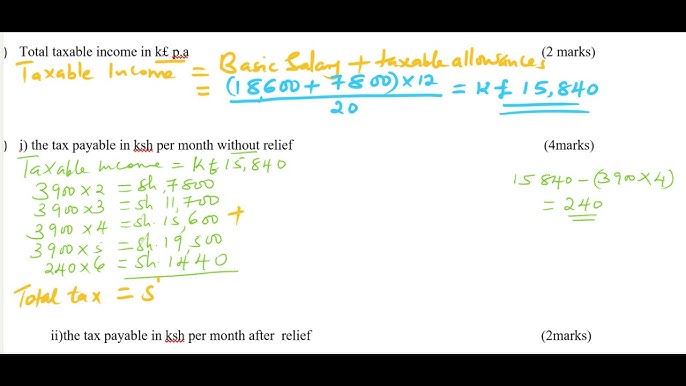 ) Total taxable income in k£ p.a (2 marks)
Taxable Income = Basic Salary + taxable allowances
= (18,600 + 7800) × 12 / 20 = K£ 15,840
) j) the tax payable in ksh per month without relief (4marks)
Taxable Income = K£ 15,840
3900 × 2 = Sh, 7800
3900 × 3 = Sh 11,700
3900 × 4 = Sh. 15,600 +
3900 × 5 = Sh. 19,500
240 × 6 = Sh. 1440
15840 - (3900 × 4)
= 240
Total tax = S
ii)the tax payable in ksh per month after relief (2marks)